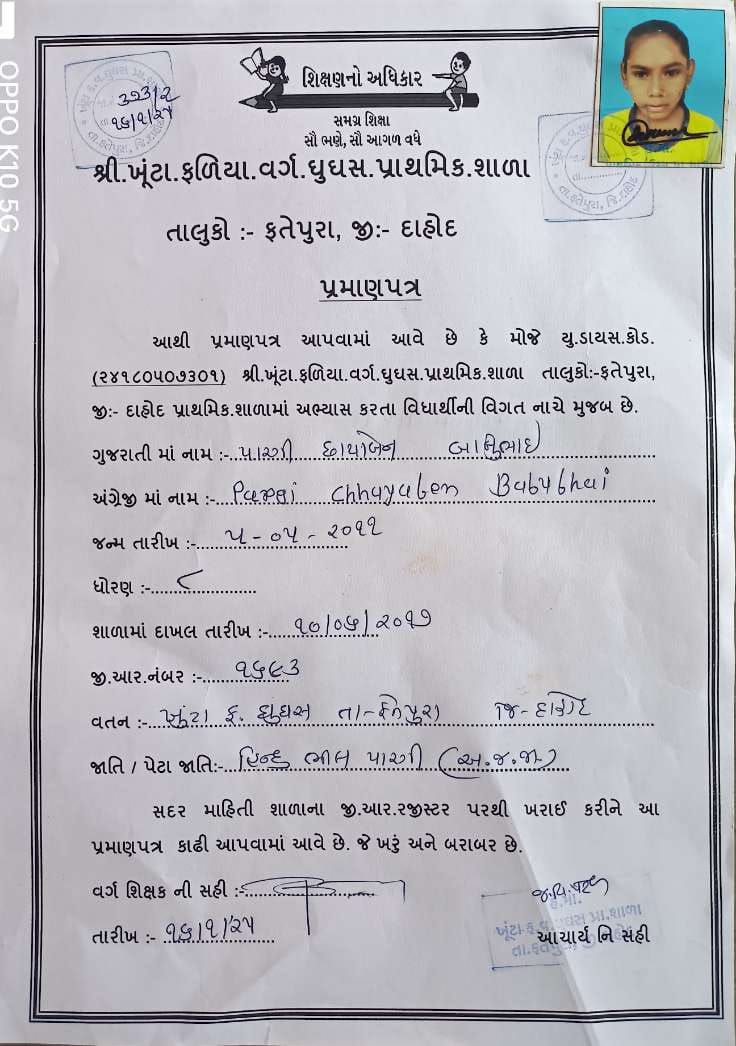 OPPO K10 5G
૩૨૩/૨
૧૬/૧/૨૫
શિક્ષણનો અધિકાર
સમગ્ર શિક્ષા
સૌ ભણે, સૌ આગળ વધે
શ્રી.ખૂંટા.ફળિયા.વર્ગ.ઘુઘસ.પ્રાથમિક.શાળા
તાલુકો :- ફતેપુરા, જી:- દાહોદ
પ્રમાણપત્ર
આથી પ્રમાણપત્ર આપવામાં આવે છે કે મોજે યુ.ડાયસ.કોડ.
(૨૪૧૮૦૫૦૭૩૦૧) શ્રી.ખૂંટા.ફળિયા.વર્ગ.ઘુઘસ.પ્રાથમિક.શાળા તાલુકો:-ફતેપુરા,
જી:- દાહોદ પ્રાથમિક.શાળામાં અભ્યાસ કરતા વિધાર્થીની વિગત નાચે મુજબ છે.
ગુજરાતી માં નામ :- પારગી છાયાબેન બાબુભાઇ
અંગ્રેજી માં નામ :- Pargi Chhayaben Babubhai
જન્મ તારીખ :- ૫-૦૫-૨૦૧૧
ધોરણ :- ૮
શાળામાં દાખલ તારીખ :- ૧૦/૦૬/૨૦૧૭
જી.આર.નંબર :- ૧૬૯૩
વતન :- ખુંટા ફ. ઘુઘસ તા-ફતેપુરા જિ-દાહોદ
જાતિ / પેટા જાતિ:- હિન્દુ ભીલ પારગી (અ.જ.જા)
સદર માહિતી શાળાના જી.આર.રજીસ્ટર પરથી ખરાઈ કરીને આ
પ્રમાણપત્ર કાઢી આપવામાં આવે છે. જે ખરું અને બરાબર છે.
વર્ગ શિક્ષક ની સહી :-
તારીખ :- ૧૬/૧/૨૫
ખૂંટા.ફ.વ.ઘુઘસ પ્રા.શાળા
આચાર્ય નિ સહી